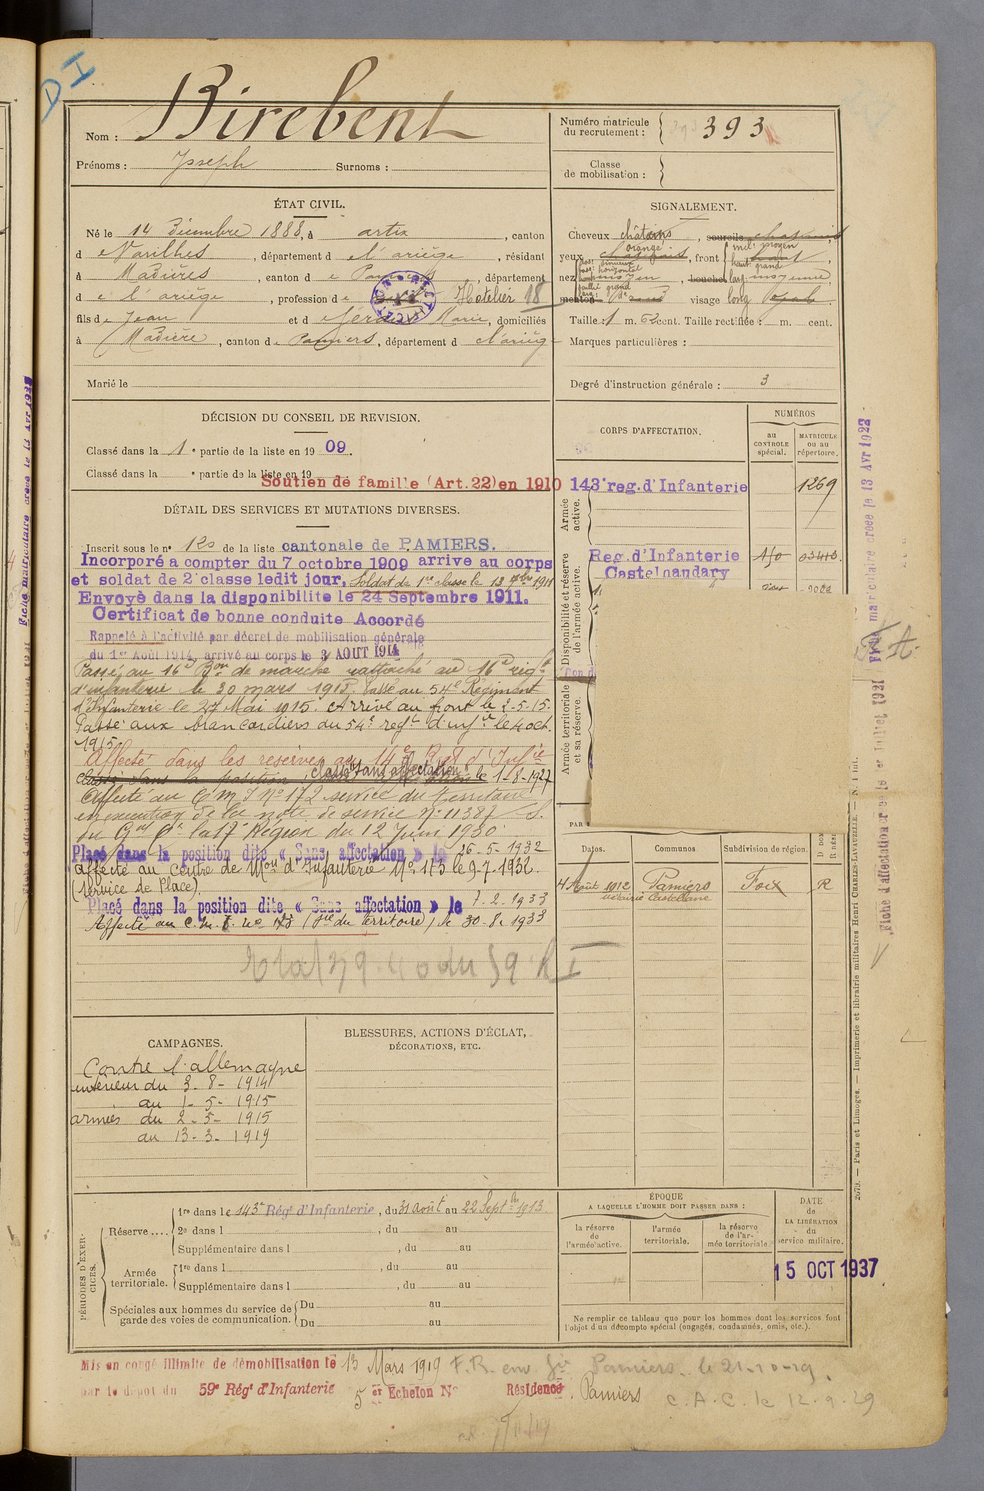 DI
Nom : Birebent
Prénoms : Joseph Surnoms :
Numéro matricule du recrutement : 393
Classe de mobilisation :
ÉTAT CIVIL.
Né le 14 Décembre 1888, à artix, canton
d e Varilhes, département d e l'ariège, résidant
à Madières, canton d e Pamiers, département
d e l'ariège, profession d e Hotelier 18
fils d e Jean et d e Marie, domiciliés
à Madière, canton d e Pamiers, département d e l'ariège
Marié le
SIGNALEMENT.
Cheveux châtains, sourcils chatains
yeux orangé, front
nez moyen, bouche moyenne
menton visage long ovale
Taille : 1 m. 62 cent. Taille rectifiée : m. cent.
Marques particulières :
Degré d'instruction générale : 3
DÉCISION DU CONSEIL DE REVISION.
Classé dans la 1e partie de la liste en 1909.
Classé dans la e partie de la liste en 19
Soutien de famille (Art. 22) en 1910
CORPS D'AFFECTATION.
NUMÉROS
au CONTRÔLE spécial.
MATRICULE ou au répertoire.
Armée active.
143e reg. d'Infanterie 1269
Disponibilité et réserve de l'armée active.
Reg. d'Infanterie
Castelnaudary
Armée territoriale et sa réserve.
DÉTAIL DES SERVICES ET MUTATIONS DIVERSES.
Inscrit sous le n° 120 de la liste cantonale de PAMIERS.
Incorporé a compter du 7 octobre 1909 arrive au corps
et soldat de 2e classe ledit jour. Soldat de 1re classe le 13 7bre 1911
Envoyé dans la disponibilite le 24 Septembre 1911.
Certificat de bonne conduite Accordé
Rappelé à l'activité par décret de mobilisation générale
du 1er Août 1914, arrivé au corps le 3 AOUT 1914
Passé au 16e Bon de marche rattaché au 16e régt
d'infanterie le 20 mars 1915. Passé au 54e Régiment
d'Infanterie le 27 Mai 1915. Arrivé au front le 2-5-15.
Passé aux brancardiers du 54e regt d'infie le 4 oct.
1915
Affecté dans les réserves au 14e Regt d'Infie
classé sans affectation le 1-8-1927
Affecté au C.M.I N° 172 service du Territoire
en execution de la note de service N° 11387
du Gal Ct la 17e Région du 12 Juin 1930.
Placé dans la position dite « Sans affectation » le 26-5-1932
affecté au Centre de Mon d'Infanterie N° 173 le 9-7-1932.
(Service de Place).
Placé dans la position dite « Sans affectation » le 7-2-1933
Affecté au C.M.I. no 173 (Sce du Territoire) le 30-8-1933
Dates. Communes. Subdivision de région.
4 Août 1912 Pamiers Foix R
CAMPAGNES.
Contre l'allemagne
intérieur du 3-8-1914
au 1-5-1915
armées du 2-5-1915
au 13-3-1919
BLESSURES, ACTIONS D'ÉCLAT,
DÉCORATIONS, ETC.
PÉRIODES D'EXERCICES.
Réserve....
1re dans le 143e Régt d'Infanterie, du 31 août au 22 Septbre 1913
2e dans l , du au
Supplémentaire dans l , du au
Armée territoriale.
1re dans l , du au
Supplémentaire dans l , du au
Spéciales aux hommes du service de garde des voies de communication.
Du au
Du au
ÉPOQUE
A LAQUELLE L'HOMME DOIT PASSER DANS :
la réserve de l'armée active.
l'armée territoriale.
la réserve de l'armée territoriale.
DATE DE LA LIBÉRATION du service militaire.
15 OCT 1937
Ne remplir ce tableau que pour les hommes dont les services font
l'objet d'un décompte spécial (engagés, condamnés, omis, etc.).
Mis en congé illimité de démobilisation le 13 Mars 1919 F.R. env Pamiers le 21-10-19.
par le dépôt du 59e Régt d'Infanterie 5 er Echelon N° Résidence Pamiers
C.A.C. le 12-9-29
2079. — Paris et Limoges. — Imprimerie et librairie militaires Henri CHARLES-LAVAUZELLE.
Fiche matriculaire créée le 13 Avr 1922
Fiche d'affectation créée le 1er Juillet 1921